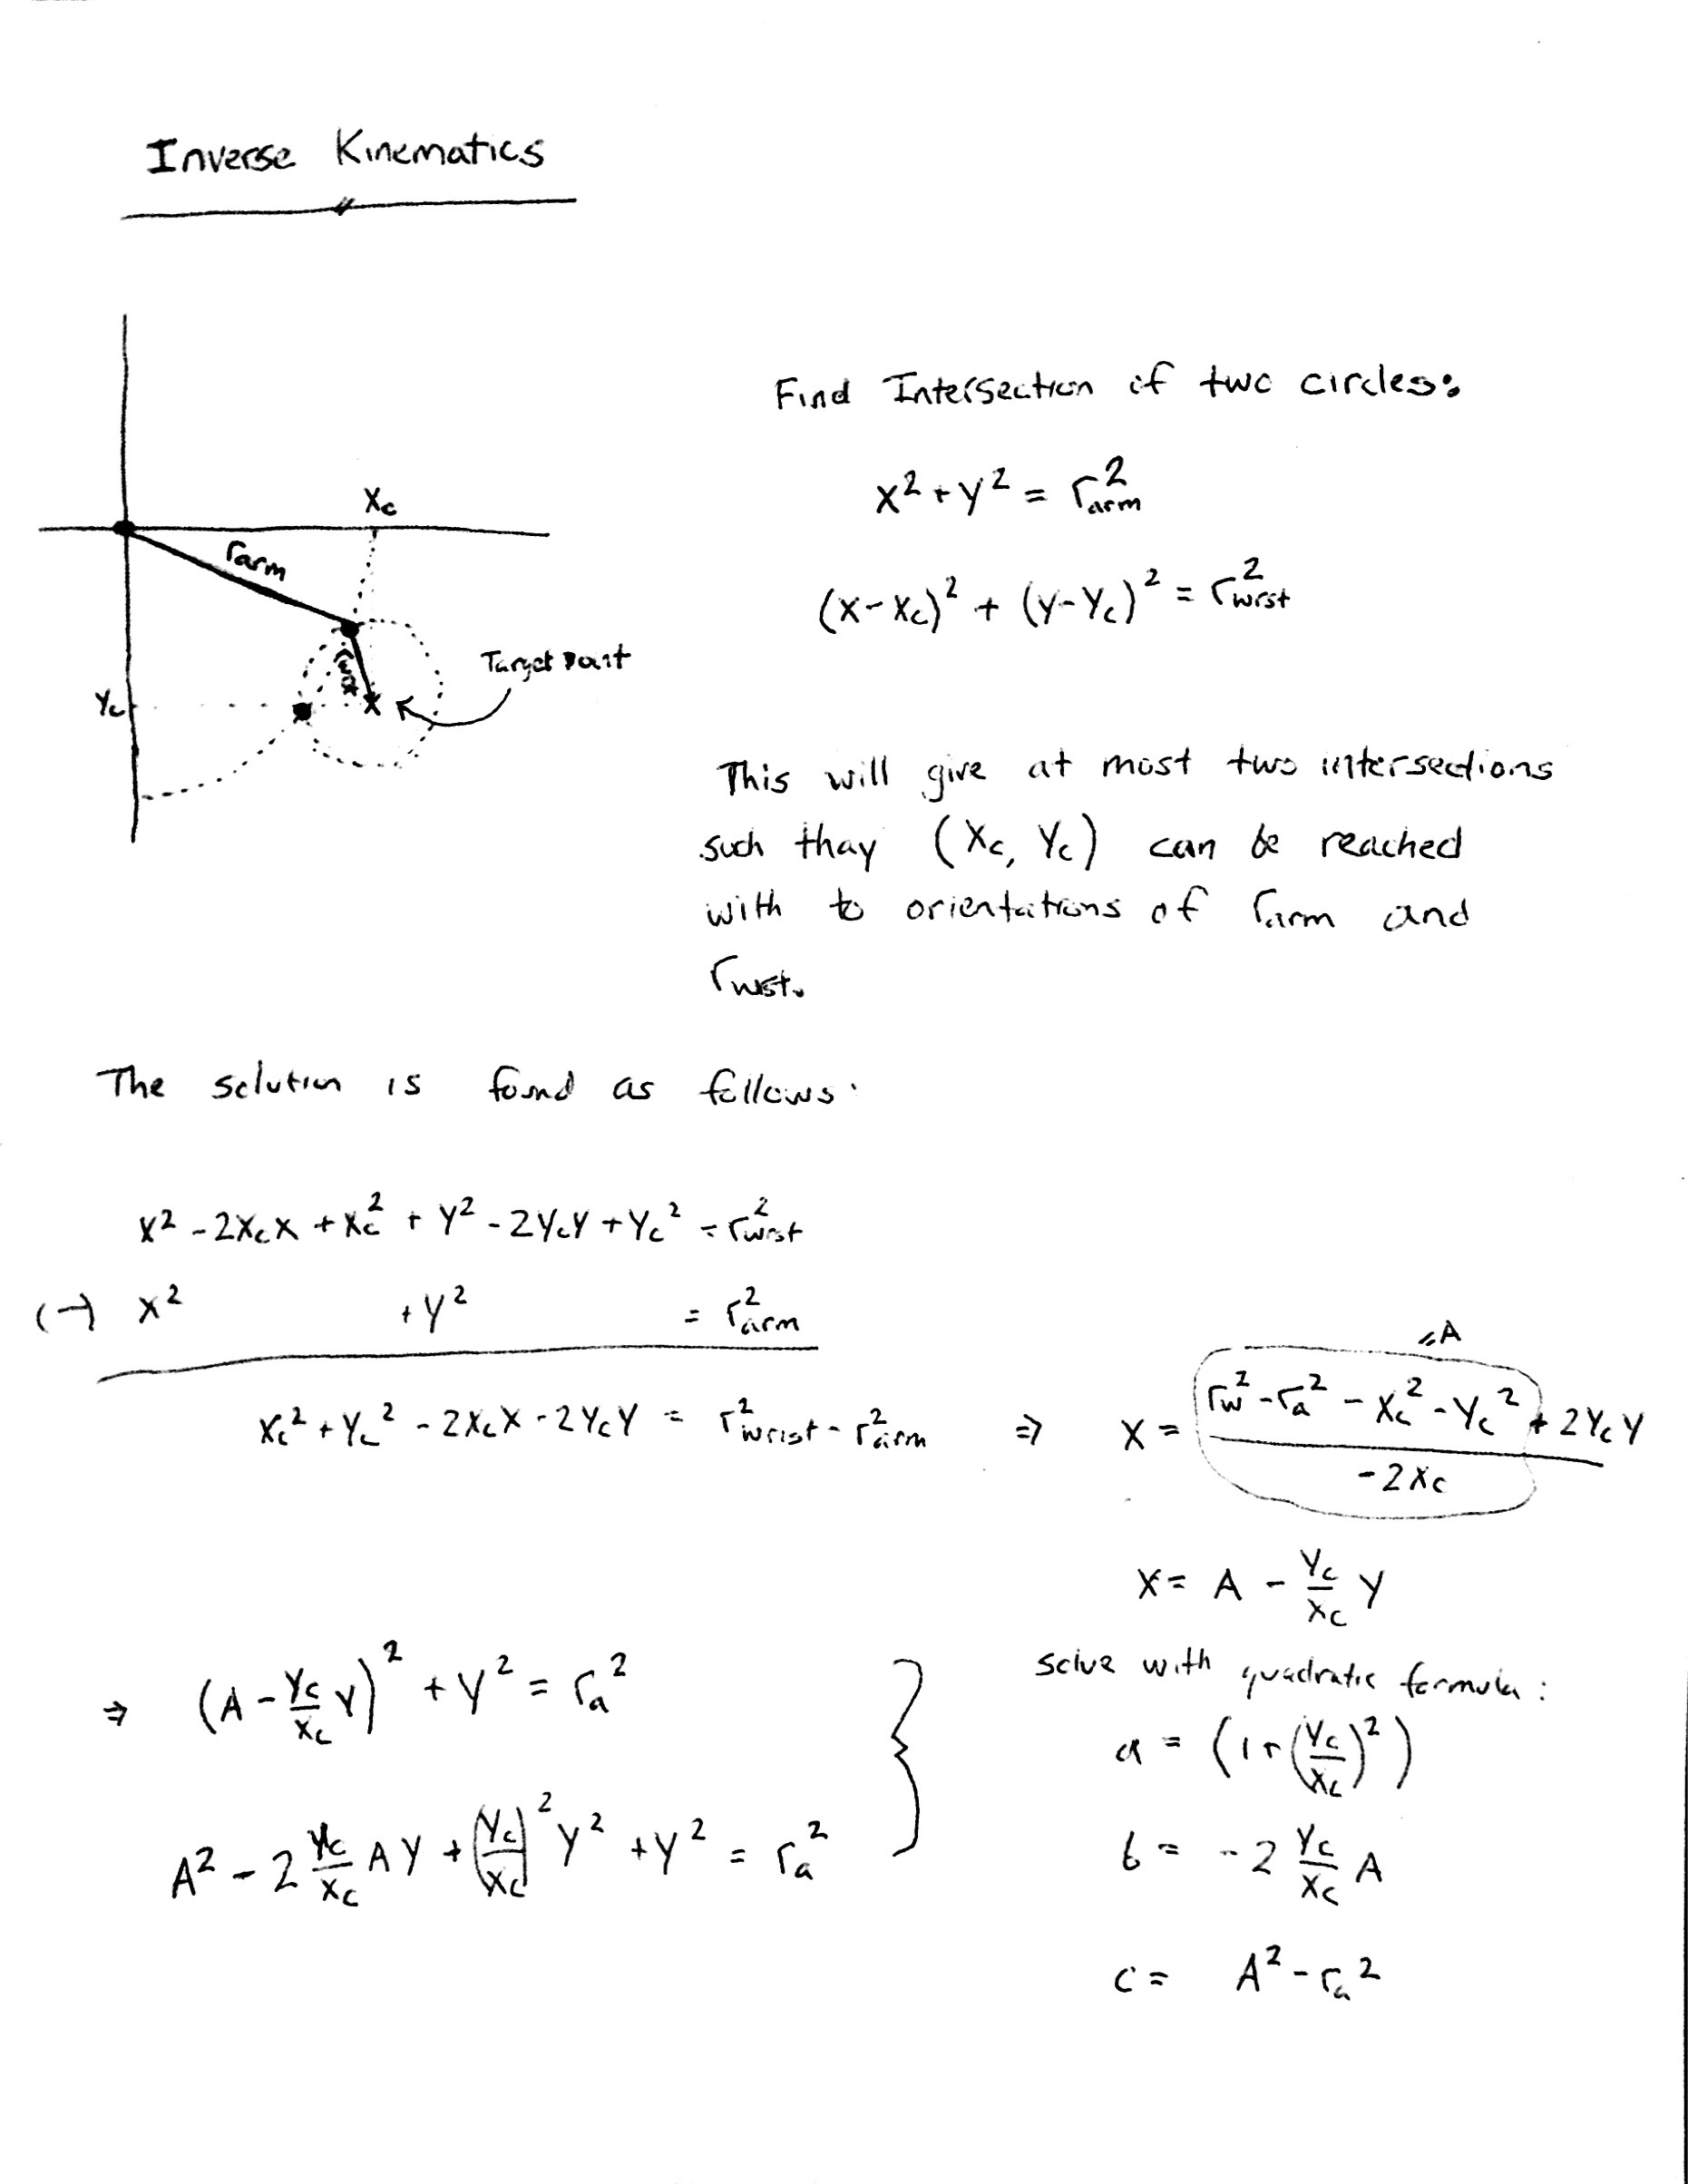 Inverse Kinematics
Find Intersection of two circles:
x² + y² = r²arm
(x-xc)² + (y-yc)² = r²wrst
Xc
rarm
Target point
Yc
X
This will give at most two intersections
such thay (Xc, Yc) can be reached
with to orientations of rarm and
rwst.
The solution is found as follows:
x² - 2xcx + xc² + y² - 2ycy + yc² = r²wrst
(-) x² + y² = r²arm
xc² + yc² - 2xcx - 2ycy = r²wrist - r²arm ⇒ x = (rw² - ra² - xc² - yc² + 2ycy) / -2xc
=A
x = A - yc/xc y
⇒ (A - yc/xc y)² + y² = ra²
A² - 2 yc/xc A y + (yc/xc)² y² + y² = ra²
solve with quadratic formula:
a = (1+(yc/xc)²)
b = -2 yc/xc A
c = A² - ra²